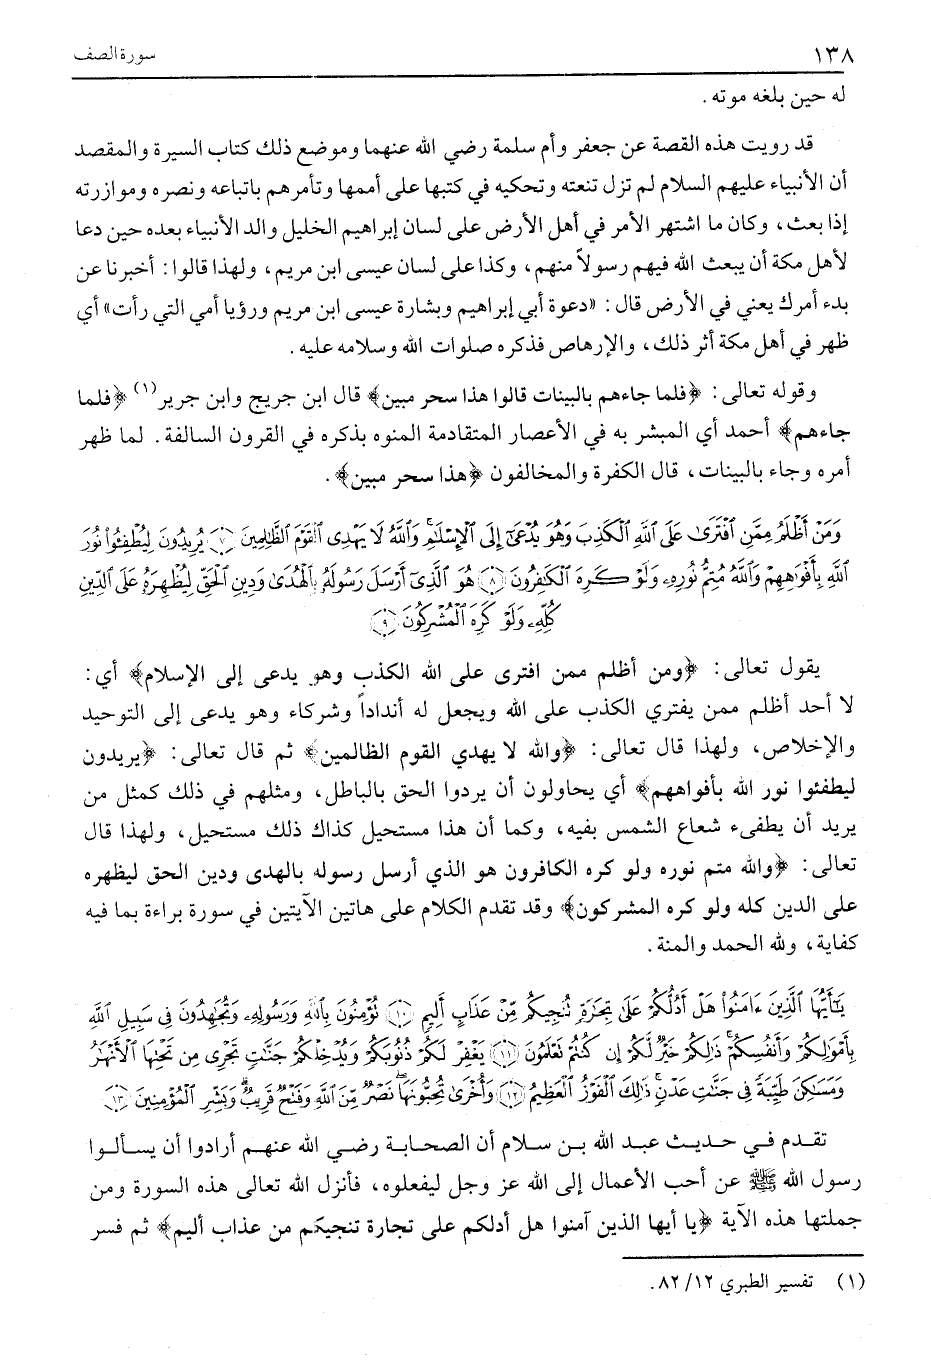 ١٣٨ سورة الصف
له حين بلغه موته .
قد رويت هذه القصة عن جعفر وأم سلمة رضي الله عنهما وموضع ذلك كتاب السيرة والمقصد
أن الأنبياء عليهم السلام لم تزل تنعته وتحكيه في كتبها على أممها وتأمرهم باتباعه ونصره وموازرته
إذا بعث، وكان ما اشتهر الأمر في أهل الأرض على لسان إبراهيم الخليل والد الأنبياء بعده حين دعا
لأهل مكة أن يبعث الله فيهم رسولاً منهم، وكذا على لسان عيسى ابن مريم، ولهذا قالوا: أخبرنا عن
بدء أمرك يعني في الأرض قال: «دعوة أبي إبراهيم وبشارة عيسى ابن مريم ورؤيا أمي التي رأت» أي
ظهر في أهل مكة أثر ذلك، والإرهاص فذكره صلوات الله وسلامه عليه.
وقوله تعالى: ﴿فلما جاءهم بالبينات قالوا هذا سحر مبين﴾ قال ابن جريج وابن جرير(١) ﴿فلما
جاءهم﴾ أحمد أي المبشر به في الأعصار المتقادمة المنوه بذكره في القرون السالفة. لما ظهر
أمره وجاء بالبينات، قال الكفرة والمخالفون ﴿هذا سحر مبين﴾.
وَمَنْ أَظْلَمُ مِمَّنِ ٱفْتَرَىٰ عَلَى ٱللَّهِ ٱلْكَذِبَ وَهُوَ يُدْعَىٰٓ إِلَى ٱلْإِسْلَٰمِ ۚ وَٱللَّهُ لَا يَهْدِى ٱلْقَوْمَ ٱلظَّٰلِمِينَ ﴿٧﴾ يُرِيدُونَ لِيُطْفِـُٔوا۟ نُورَ
ٱللَّهِ بِأَفْوَٰهِهِمْ وَٱللَّهُ مُتِمُّ نُورِهِۦ وَلَوْ كَرِهَ ٱلْكَٰفِرُونَ ﴿٨﴾ هُوَ ٱلَّذِىٓ أَرْسَلَ رَسُولَهُۥ بِٱلْهُدَىٰ وَدِينِ ٱلْحَقِّ لِيُظْهِرَهُۥ عَلَى ٱلدِّينِ
كُلِّهِۦ وَلَوْ كَرِهَ ٱلْمُشْرِكُونَ ﴿٩﴾
يقول تعالى: ﴿ومن أظلم ممن افترى على الله الكذب وهو يدعى إلى الإسلام﴾ أي:
لا أحد أظلم ممن يفتري الكذب على الله ويجعل له أنداداً وشركاء وهو يدعى إلى التوحيد
والإخلاص، ولهذا قال تعالى: ﴿والله لا يهدي القوم الظالمين﴾ ثم قال تعالى: ﴿يريدون
ليطفئوا نور الله بأفواههم﴾ أي يحاولون أن يردوا الحق بالباطل، ومثلهم في ذلك كمثل من
يريد أن يطفىء شعاع الشمس بفيه، وكما أن هذا مستحيل كذاك ذلك مستحيل، ولهذا قال
تعالى: ﴿والله متم نوره ولو كره الكافرون هو الذي أرسل رسوله بالهدى ودين الحق ليظهره
على الدين كله ولو كره المشركون﴾ وقد تقدم الكلام على هاتين الآيتين في سورة براءة بما فيه
كفاية، ولله الحمد والمنة.
يَٰٓأَيُّهَا ٱلَّذِينَ ءَامَنُوا۟ هَلْ أَدُلُّكُمْ عَلَىٰ تِجَٰرَةٍ تُنجِيكُم مِّنْ عَذَابٍ أَلِيمٍ ﴿١٠﴾ تُؤْمِنُونَ بِٱللَّهِ وَرَسُولِهِۦ وَتُجَٰهِدُونَ فِى سَبِيلِ ٱللَّهِ
بِأَمْوَٰلِكُمْ وَأَنفُسِكُمْ ۚ ذَٰلِكُمْ خَيْرٌ لَّكُمْ إِن كُنتُمْ تَعْلَمُونَ ﴿١١﴾ يَغْفِرْ لَكُمْ ذُنُوبَكُمْ وَيُدْخِلْكُمْ جَنَّٰتٍ تَجْرِى مِن تَحْتِهَا ٱلْأَنْهَٰرُ
وَمَسَٰكِنَ طَيِّبَةً فِى جَنَّٰتِ عَدْنٍ ۚ ذَٰلِكَ ٱلْفَوْزُ ٱلْعَظِيمُ ﴿١٢﴾ وَأُخْرَىٰ تُحِبُّونَهَا ۖ نَصْرٌ مِّنَ ٱللَّهِ وَفَتْحٌ قَرِيبٌ ۗ وَبَشِّرِ ٱلْمُؤْمِنِينَ ﴿١٣﴾
تقدم في حديث عبد الله بن سلام أن الصحابة رضي الله عنهم أرادوا أن يسألوا
رسول الله ﷺ عن أحب الأعمال إلى الله عز وجل ليفعلوه، فأنزل الله تعالى هذه السورة ومن
جملتها هذه الآية ﴿يا أيها الذين آمنوا هل أدلكم على تجارة تنجيكم من عذاب أليم﴾ ثم فسر
(١) تفسير الطبري ١٢/ ٨٢.